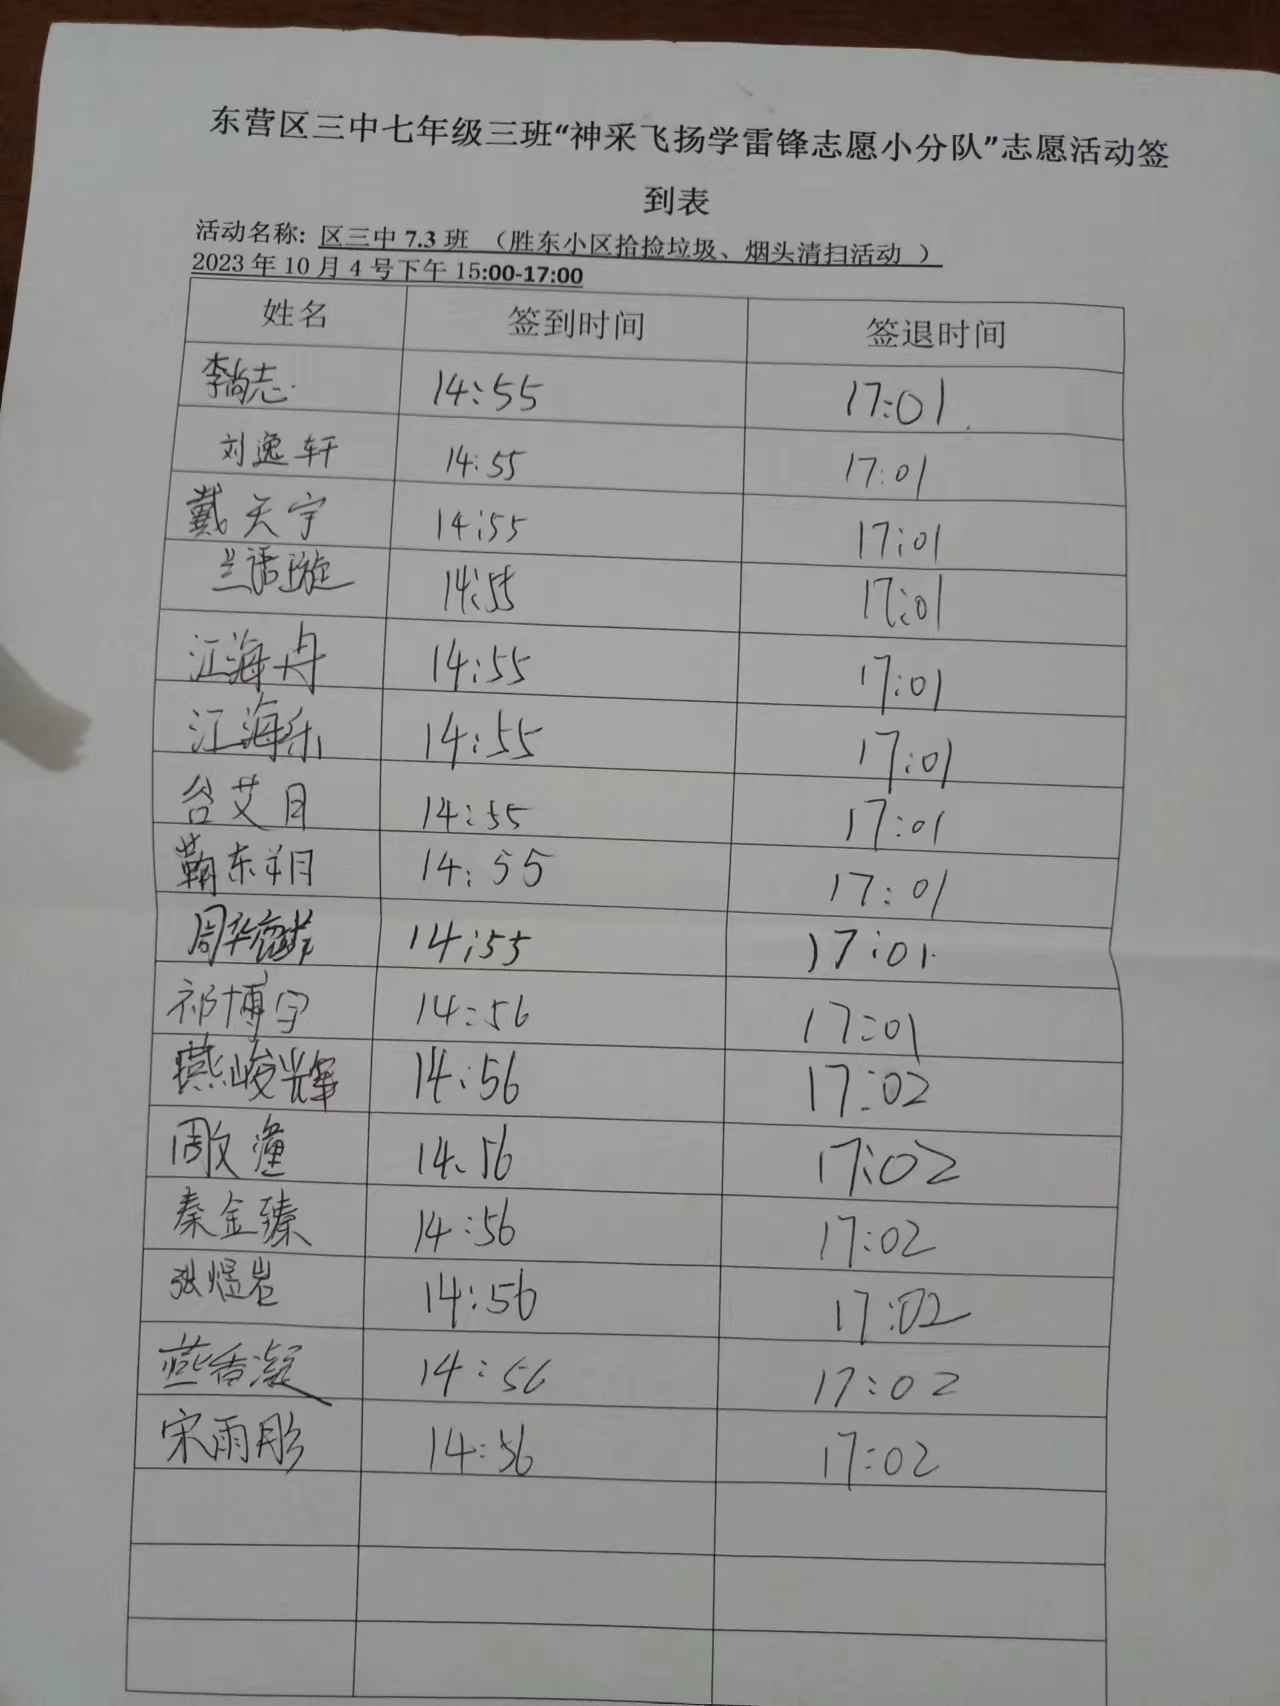 东营区三中七年级三班“神采飞扬学雷锋志愿小分队”志愿活动签
到表
活动名称: 区三中 7.3 班 （胜东小区拾捡垃圾、烟头清扫活动 ）
2023 年 10 月 4 号下午 15:00-17:00
姓名 签到时间 签退时间
李尚志 14:55 17:01
刘逸轩 14:55 17:01
戴天宇 14:55 17:01
兰语璇 14:55 17:01
江海舟 14:55 17:01
江海乐 14:55 17:01
台艾月 14:55 17:01
东玥 14:55 17:01
周华 14:55 17:01
祁博宇 14:56 17:01
燕峻辉 14:56 17:02
周文潼 14:56 17:02
秦金臻 14:56 17:02
张煜岩 14:56 17:02
燕香凝 14:56 17:02
宋雨彤 14:56 17:02